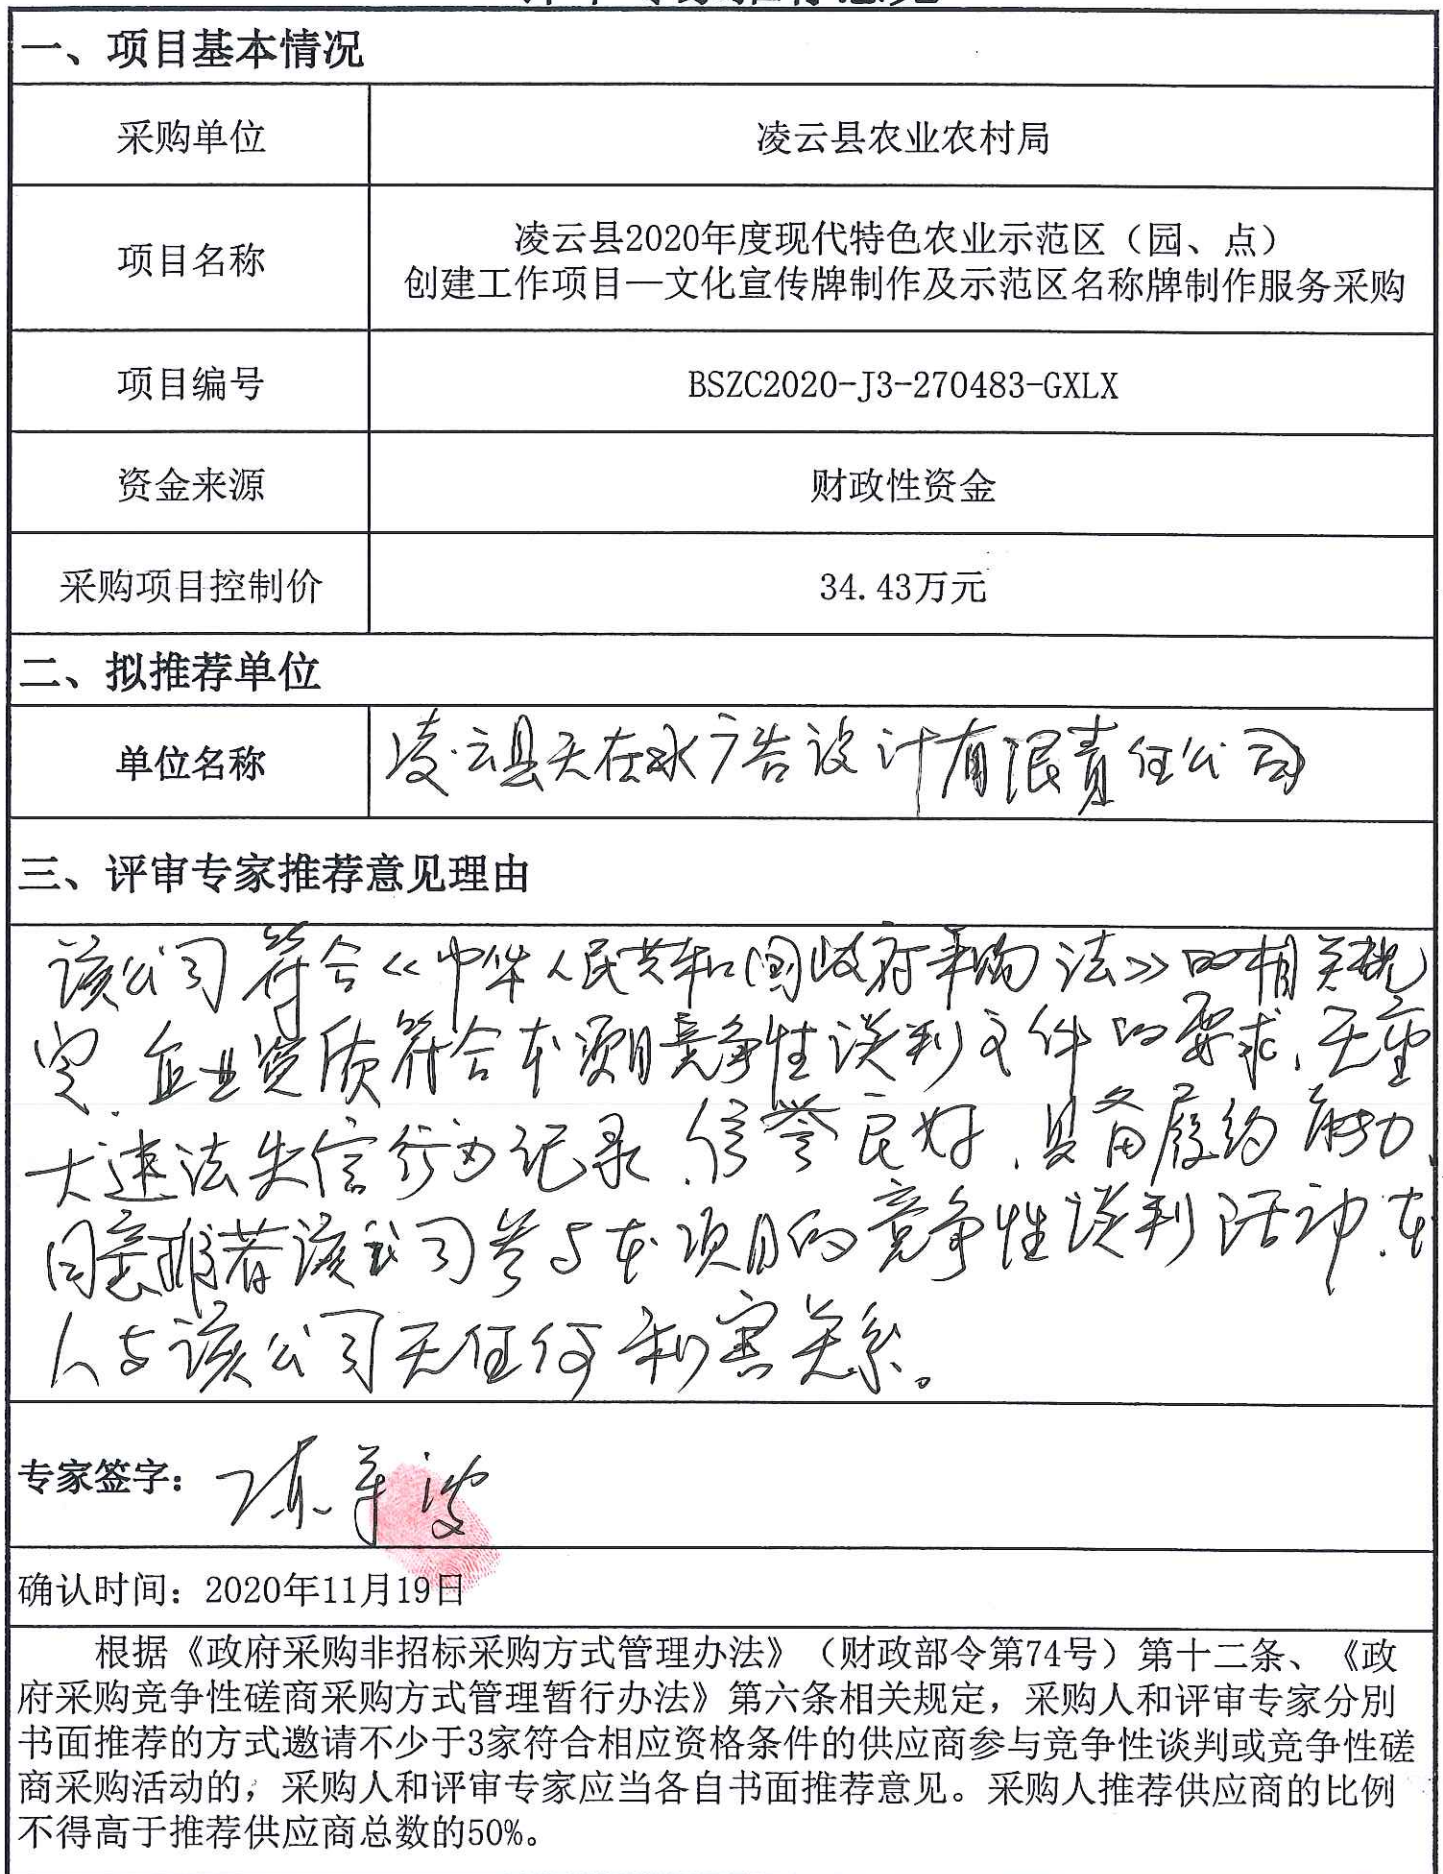 一、项目基本情况
采购单位
凌云县农业农村局
项目名称
凌云县2020年度现代特色农业示范区（园、点）
创建工作项目—文化宣传牌制作及示范区名称牌制作服务采购
项目编号
BSZC2020-J3-270483-GXLX
资金来源
财政性资金
采购项目控制价
34.43万元
二、拟推荐单位
单位名称
凌云县天在水广告设计有限责任公司
三、评审专家推荐意见理由
该公司符合《中华人民共和国政府采购法》的相关规
定、企业资质符合本项目竞争性谈判文件的要求、无重
大违法失信行为记录、信誉良好、具备履约能力、
同意推荐该公司参与本项目的竞争性谈判活动、本
人与该公司无任何利害关系。
专家签字：
确认时间：2020年11月19日
根据《政府采购非招标采购方式管理办法》（财政部令第74号）第十二条、《政
府采购竞争性磋商采购方式管理暂行办法》第六条相关规定，采购人和评审专家分别
书面推荐的方式邀请不少于3家符合相应资格条件的供应商参与竞争性谈判或竞争性磋
商采购活动的，采购人和评审专家应当各自书面推荐意见。采购人推荐供应商的比例
不得高于推荐供应商总数的50%。